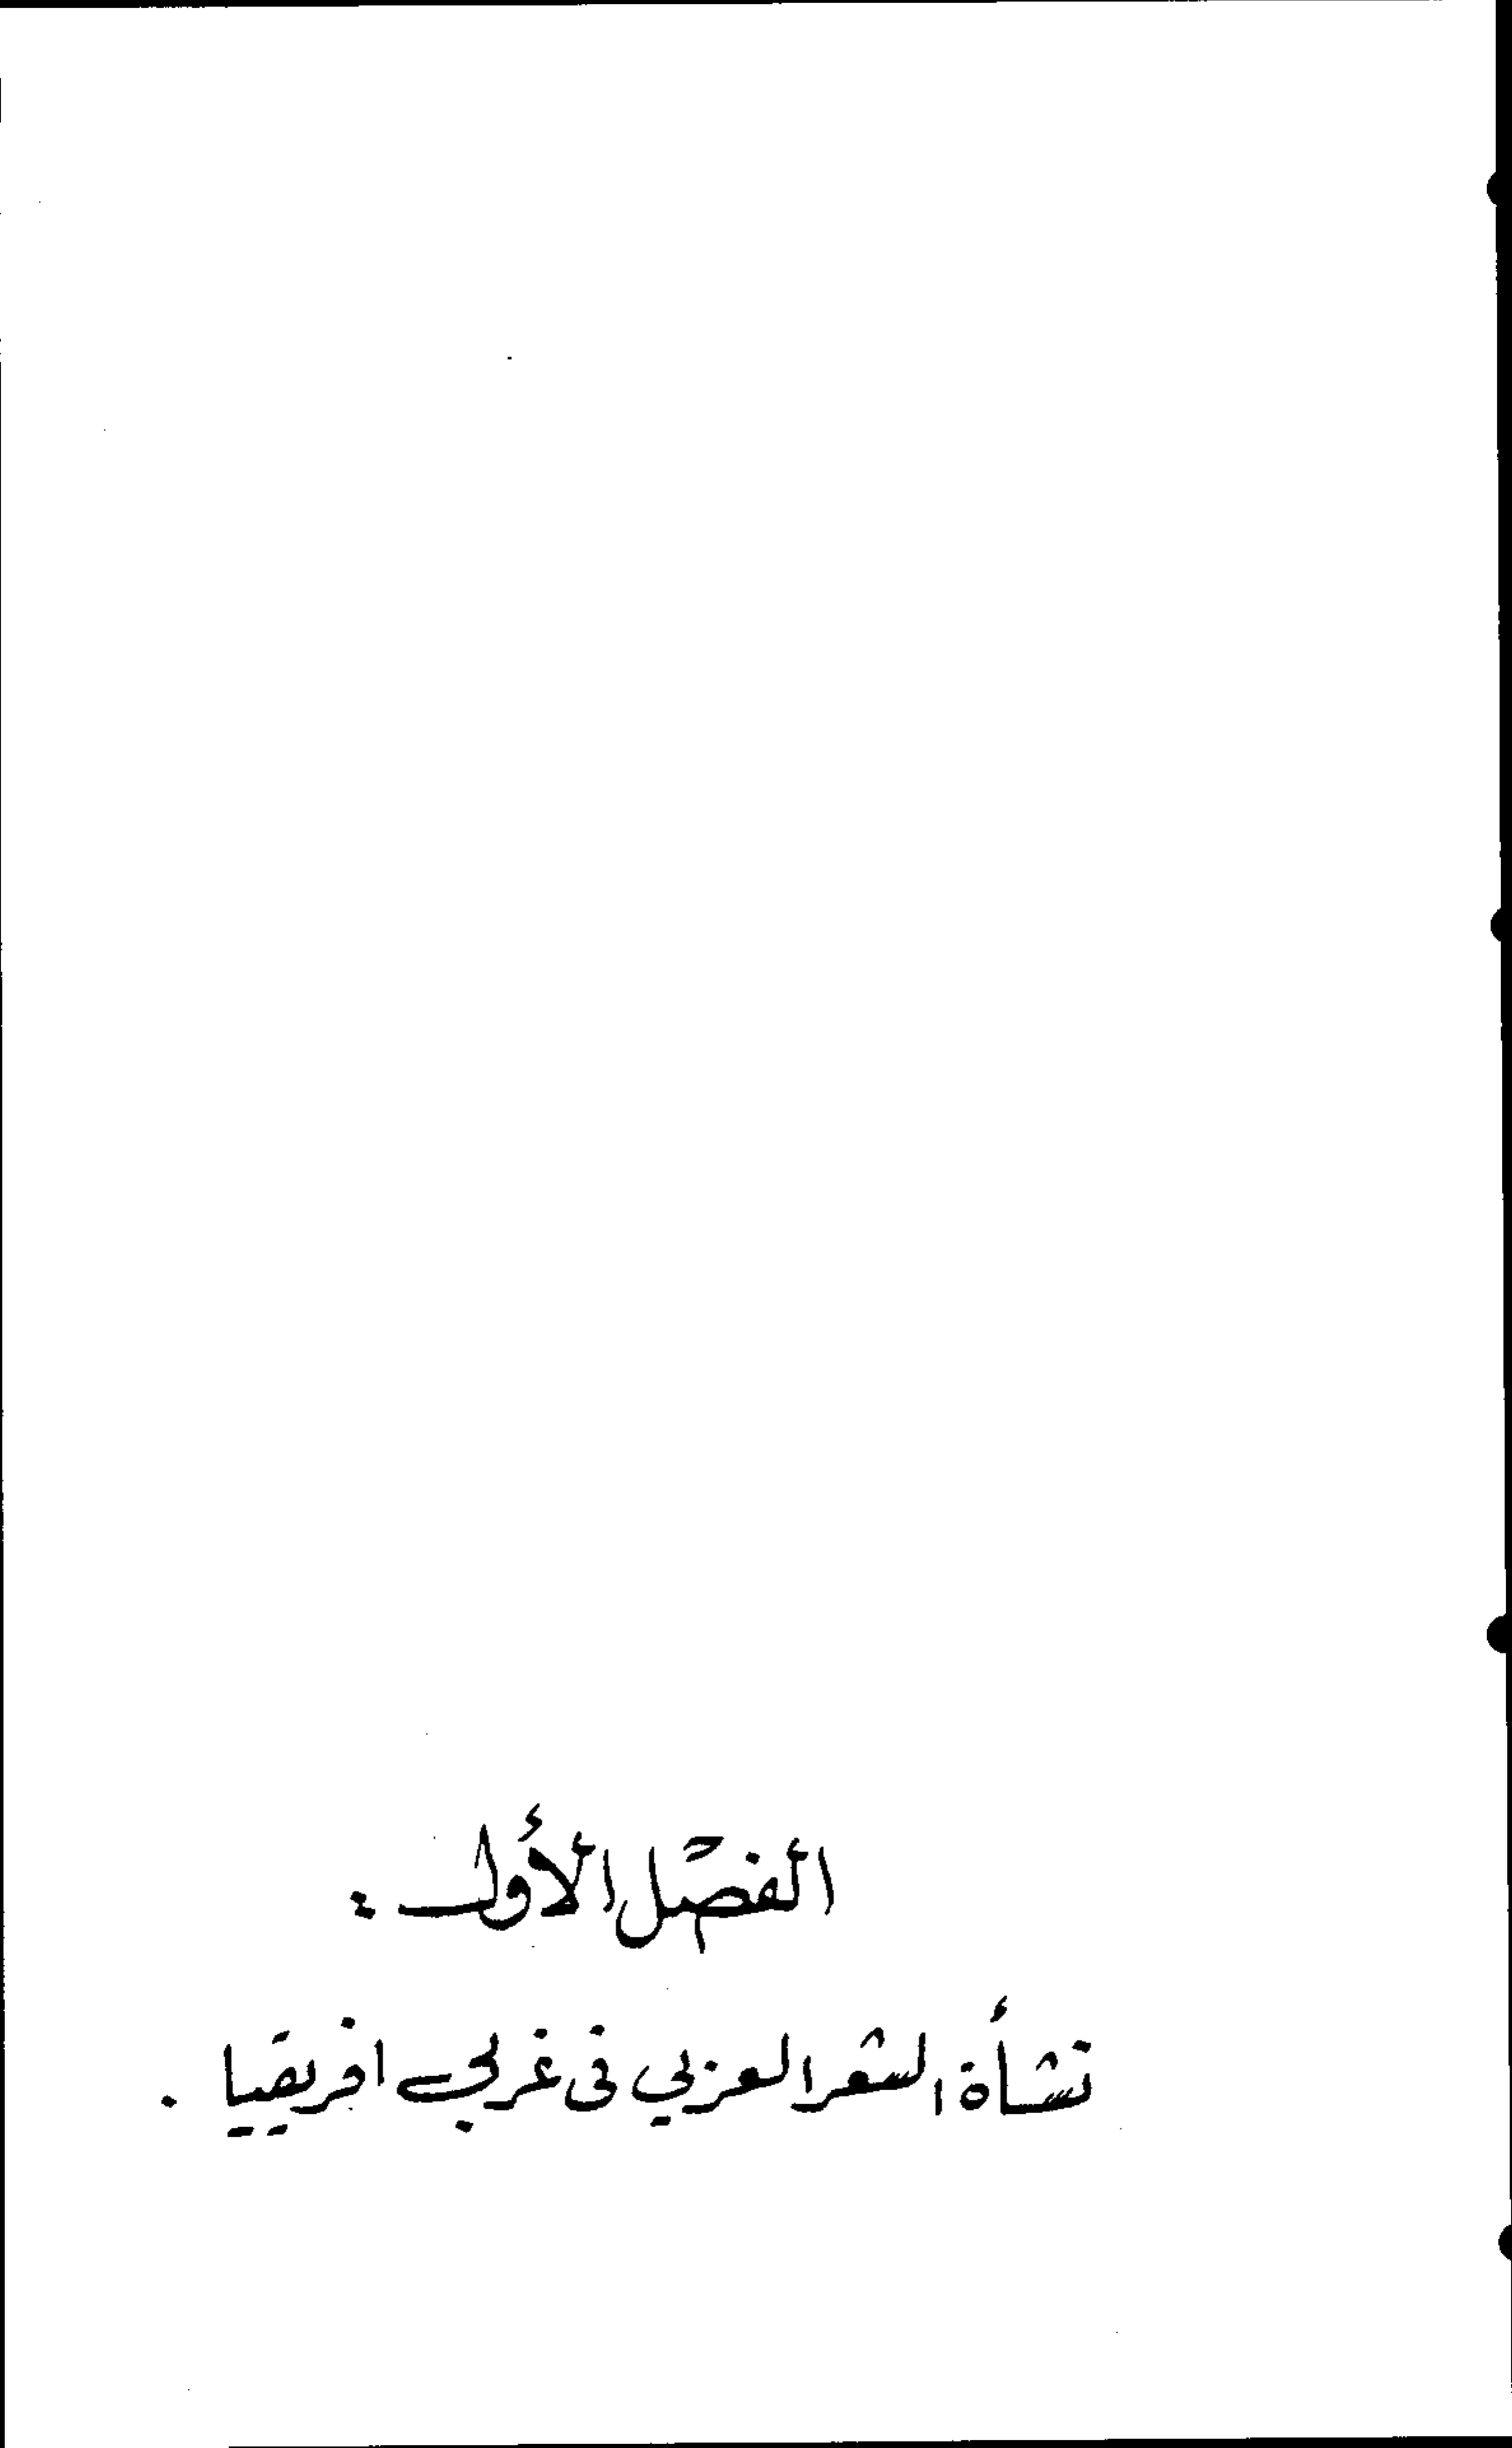 الفصل الأول :
نشأة الشعر العربي في غربي افريقيا .